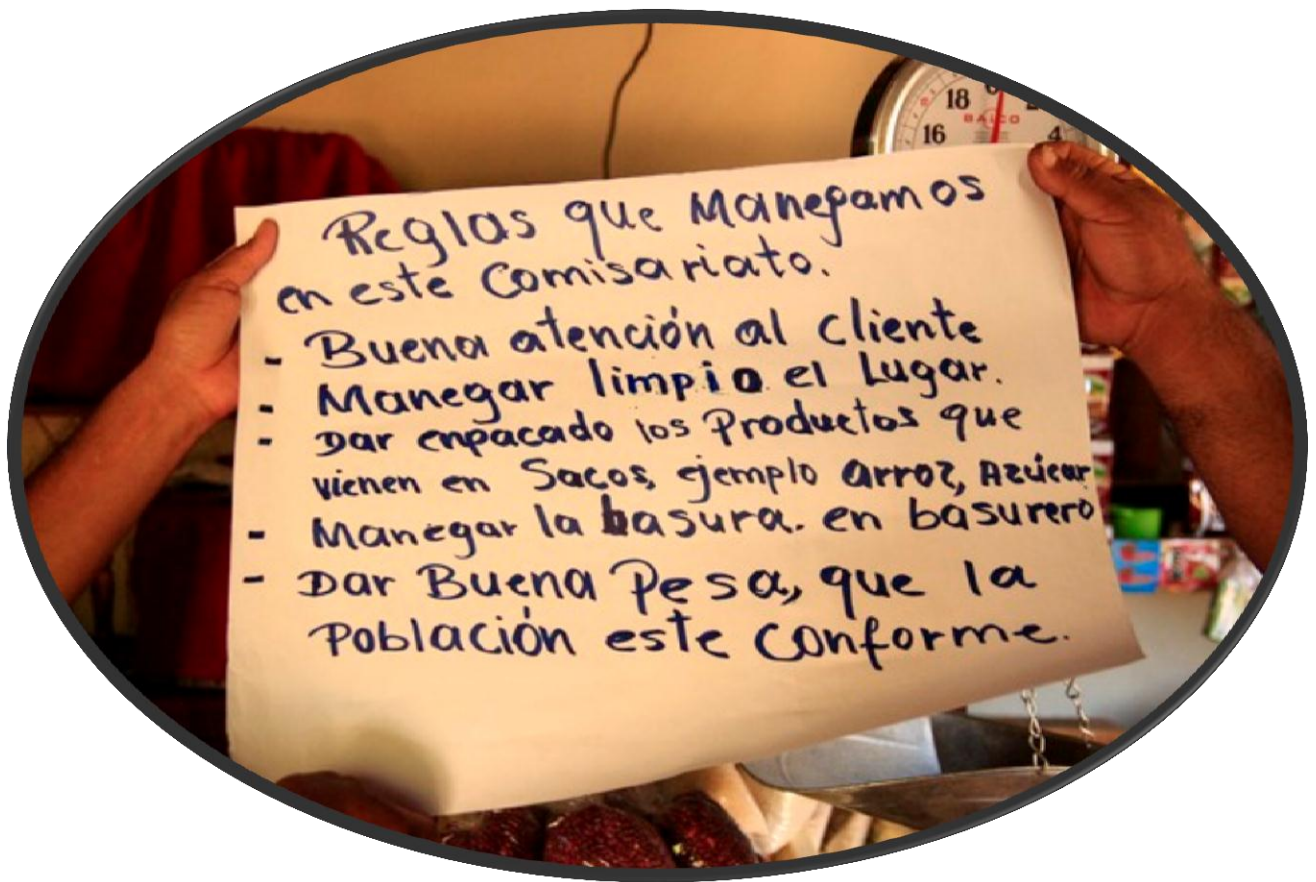 18
0
16
BALCO
4
Reglas que Manegamos
en este Comisariato.
- Buena atención al cliente
- Manegar limpio el Lugar.
- Dar enpacado los Productos que
vienen en Sacos, ejemplo arroz, Azúcar
- Manegar la basura. en basurero
- Dar Buena Pesa, que la
Población este conforme.